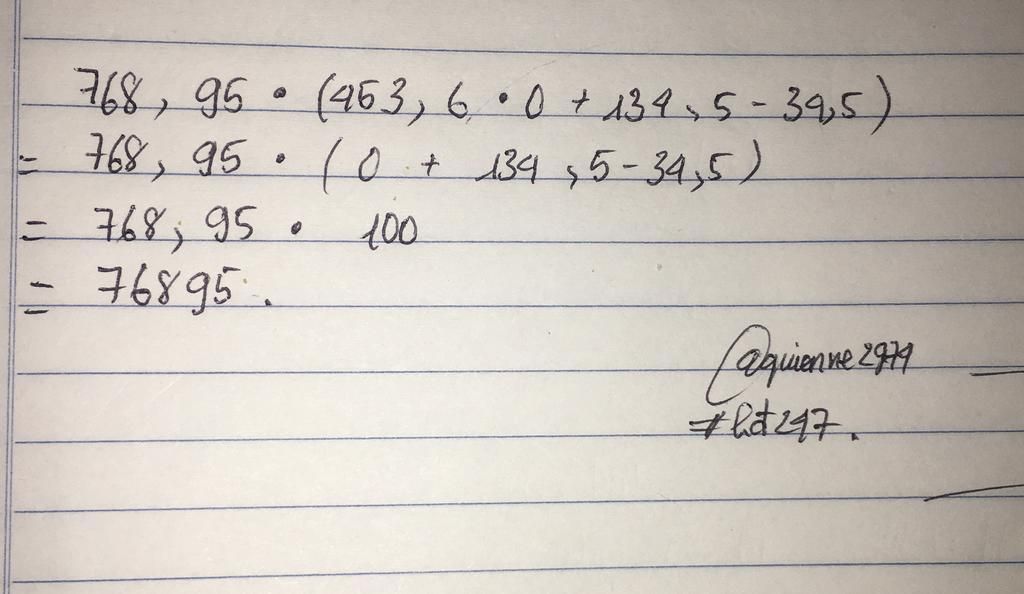 768, 95 · (453, 6 · 0 + 134, 5 - 34,5)
= 768, 95 · ( 0 + 134, 5 - 34,5)
= 768, 95 · 100
= 76895.
@quienne2979
#hd247.